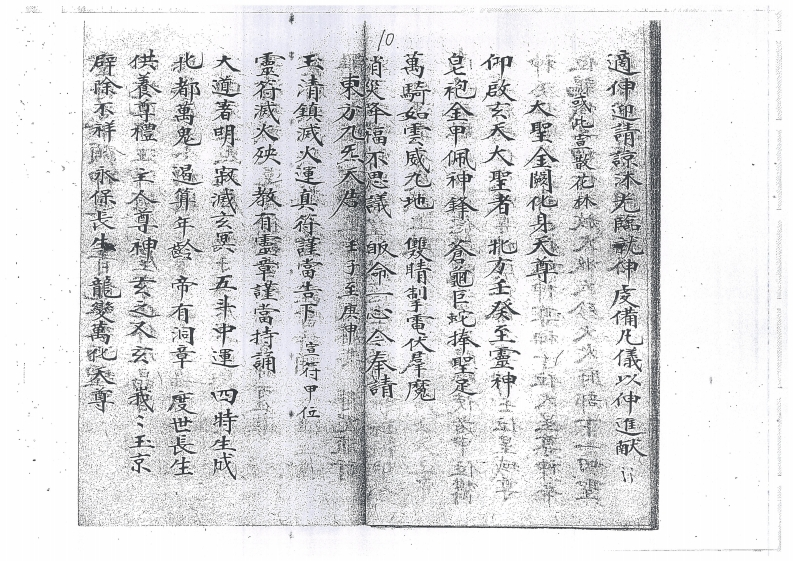 10.
適伸迎請諒沐光臨祇伸虔備凡儀以伸進献 11
大聖金闕化身天尊
仰啟玄天大聖者 北方壬癸至靈神
皂袍金甲佩神鋒 蒼龜巨蛇捧聖足
萬騎如雲威九地 雙睛掣電伏羣魔
消災降福不思議 皈命一心今奉請
東方九炁天君 壬子至庚神
玉清鎮滅火運真符謹當告下 宣符甲位
靈符滅火殃 教有靈章謹當持誦
大道着明 寂滅玄異 五斗中運 四時生成
北都萬鬼 遏算年齡 帝有洞章 度世長生
供養尊禮 主令尊神 玄之又玄 我〻玉京
廗除不祥 永保長生 龍變萬化天尊